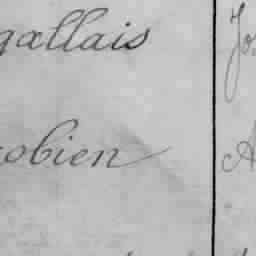 gallais Jo
obien A